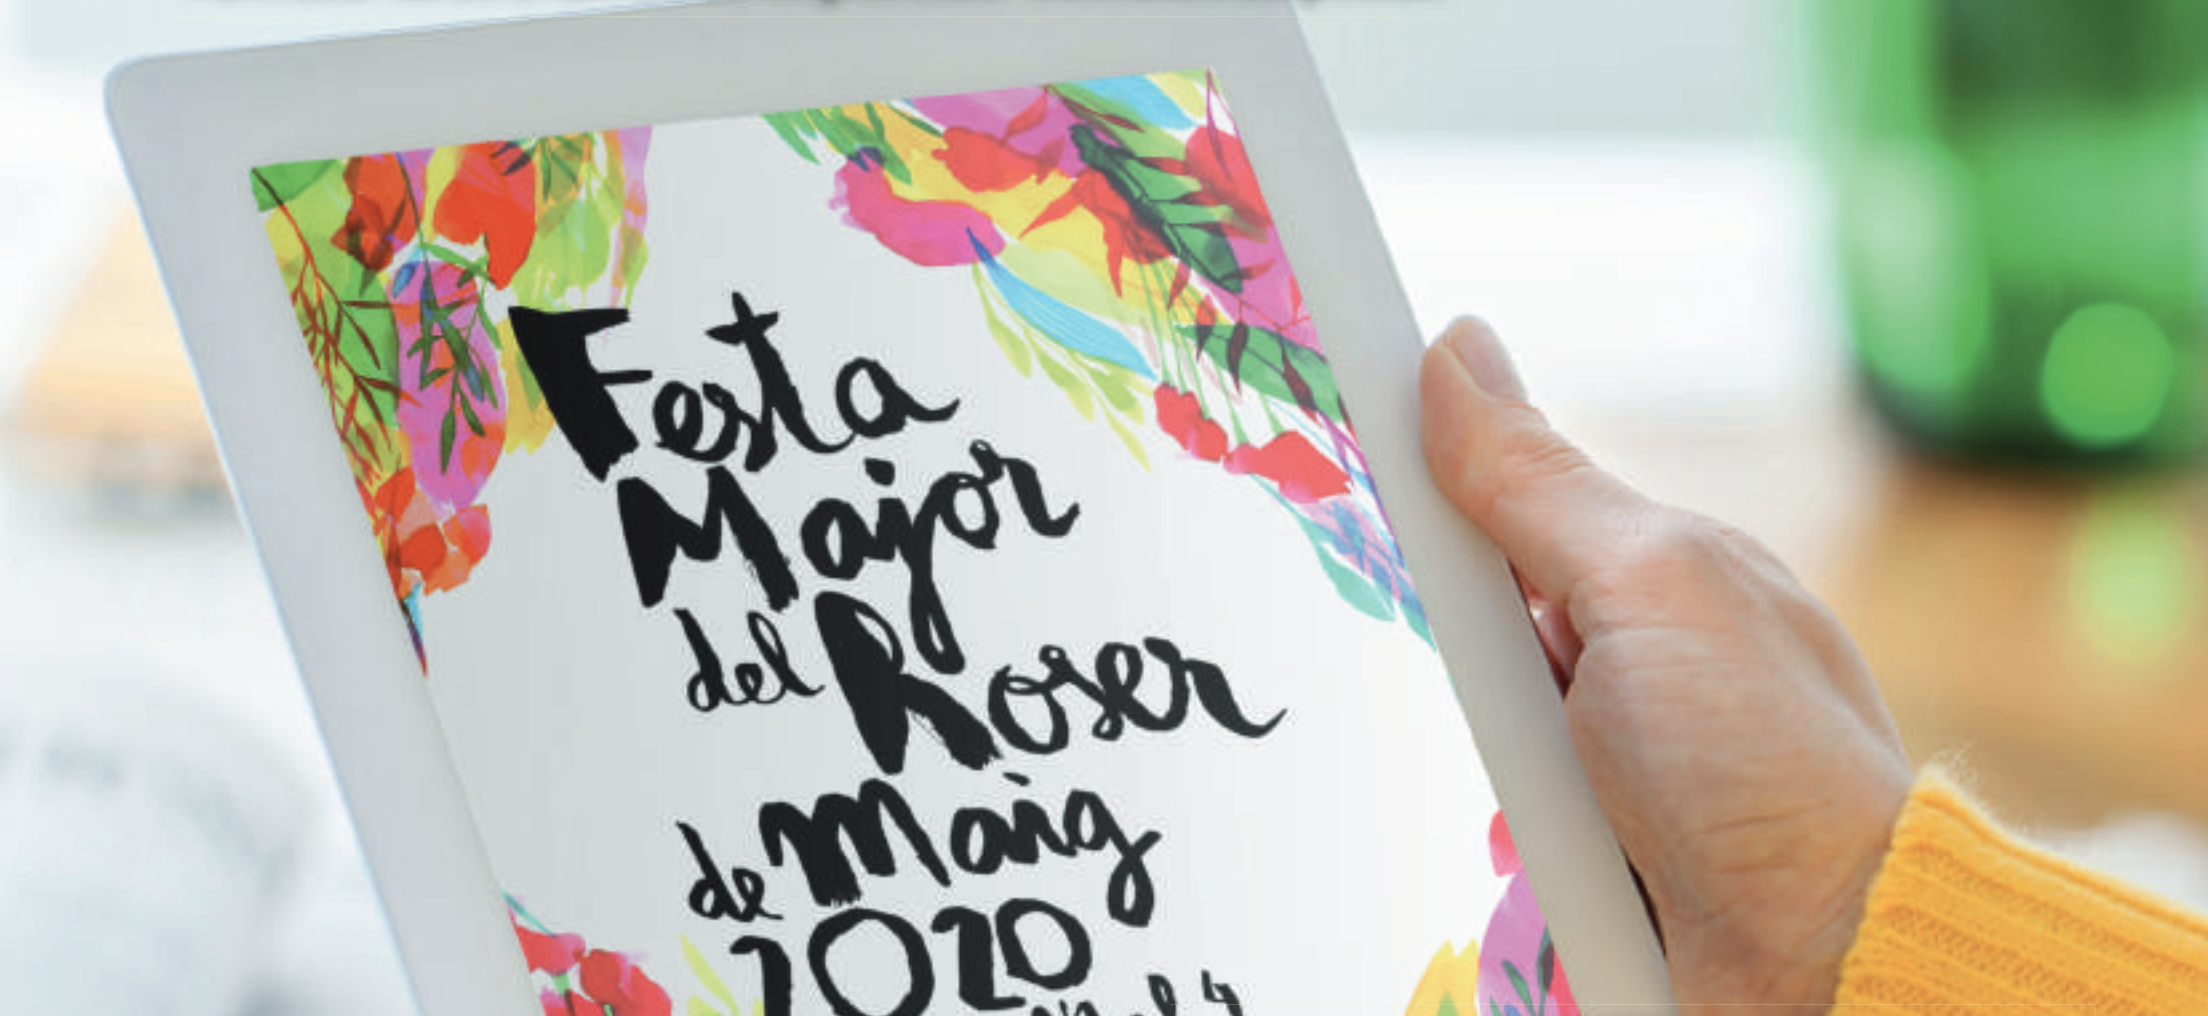 Festa
Major
del Roser
de Maig
2020